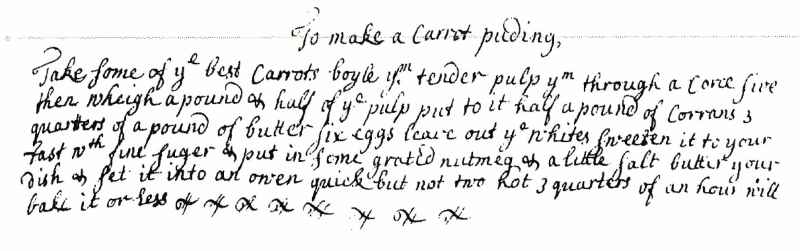 To make a Carrot puding,
Take some of yᵉ best Carrots boyle yᵐ tender pulp yᵐ through a Corce sive
then wheigh a pound & half of yᵉ pulp put to it half a pound of Corrans 3
quarters of a pound of butter six eggs leave out yᵉ whites sweeten it to your
tast wᵗʰ fine suger & put in some grated nutmeg & a little salt butter your
dish & set it into an owen quick but not two hot 3 quarters of an hour will
bake it or less